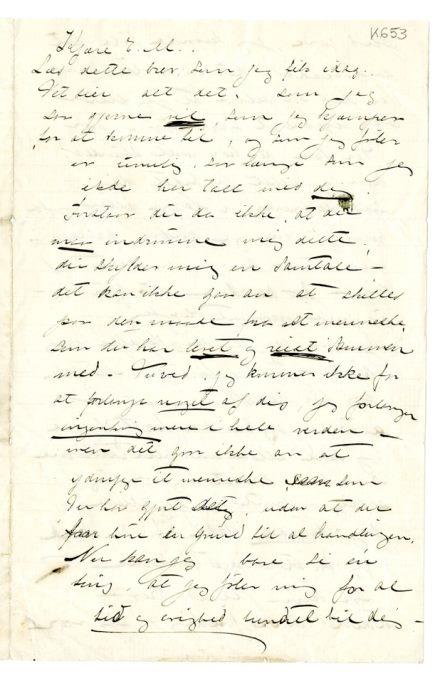 K653
Kjære E. M.
Læs dette brev, som jeg fik idag.
Det sier alt det, som jeg
saa gjerne vil, som jeg kjæmper
for at komme til, og som jeg føler
er umulig saa længe som jeg
ikke har talt med dig.
Forstaar du da ikke, at du
maa indrømme mig dette,
du skylder mig en samtale –
det kan ikke gaa an at skilles
paa den maade fra et menneske,
som du har levet og reist sammen
med – Tuved, jeg kommer ikke for
at forlange noget af dig jeg forlanger
ingenting mere i hele verden –
men det gaar ikke an at
ydmyge et menneske som
Du har gjort det, uden at du
faar høre en Grund til al handlingen.
Nu kan jeg bare si én
ting, at jeg føler mig for al
tid og evighed bundet til dig –